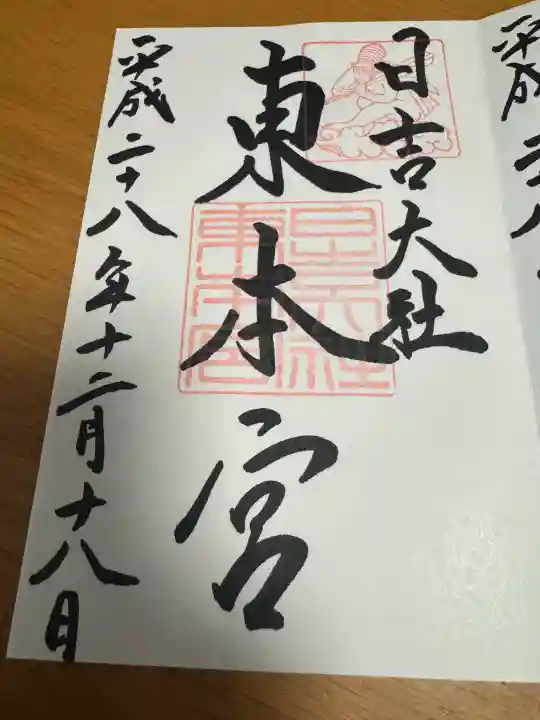 日吉大社
東本宮
平成二十八年十二月十八日
平成二十八